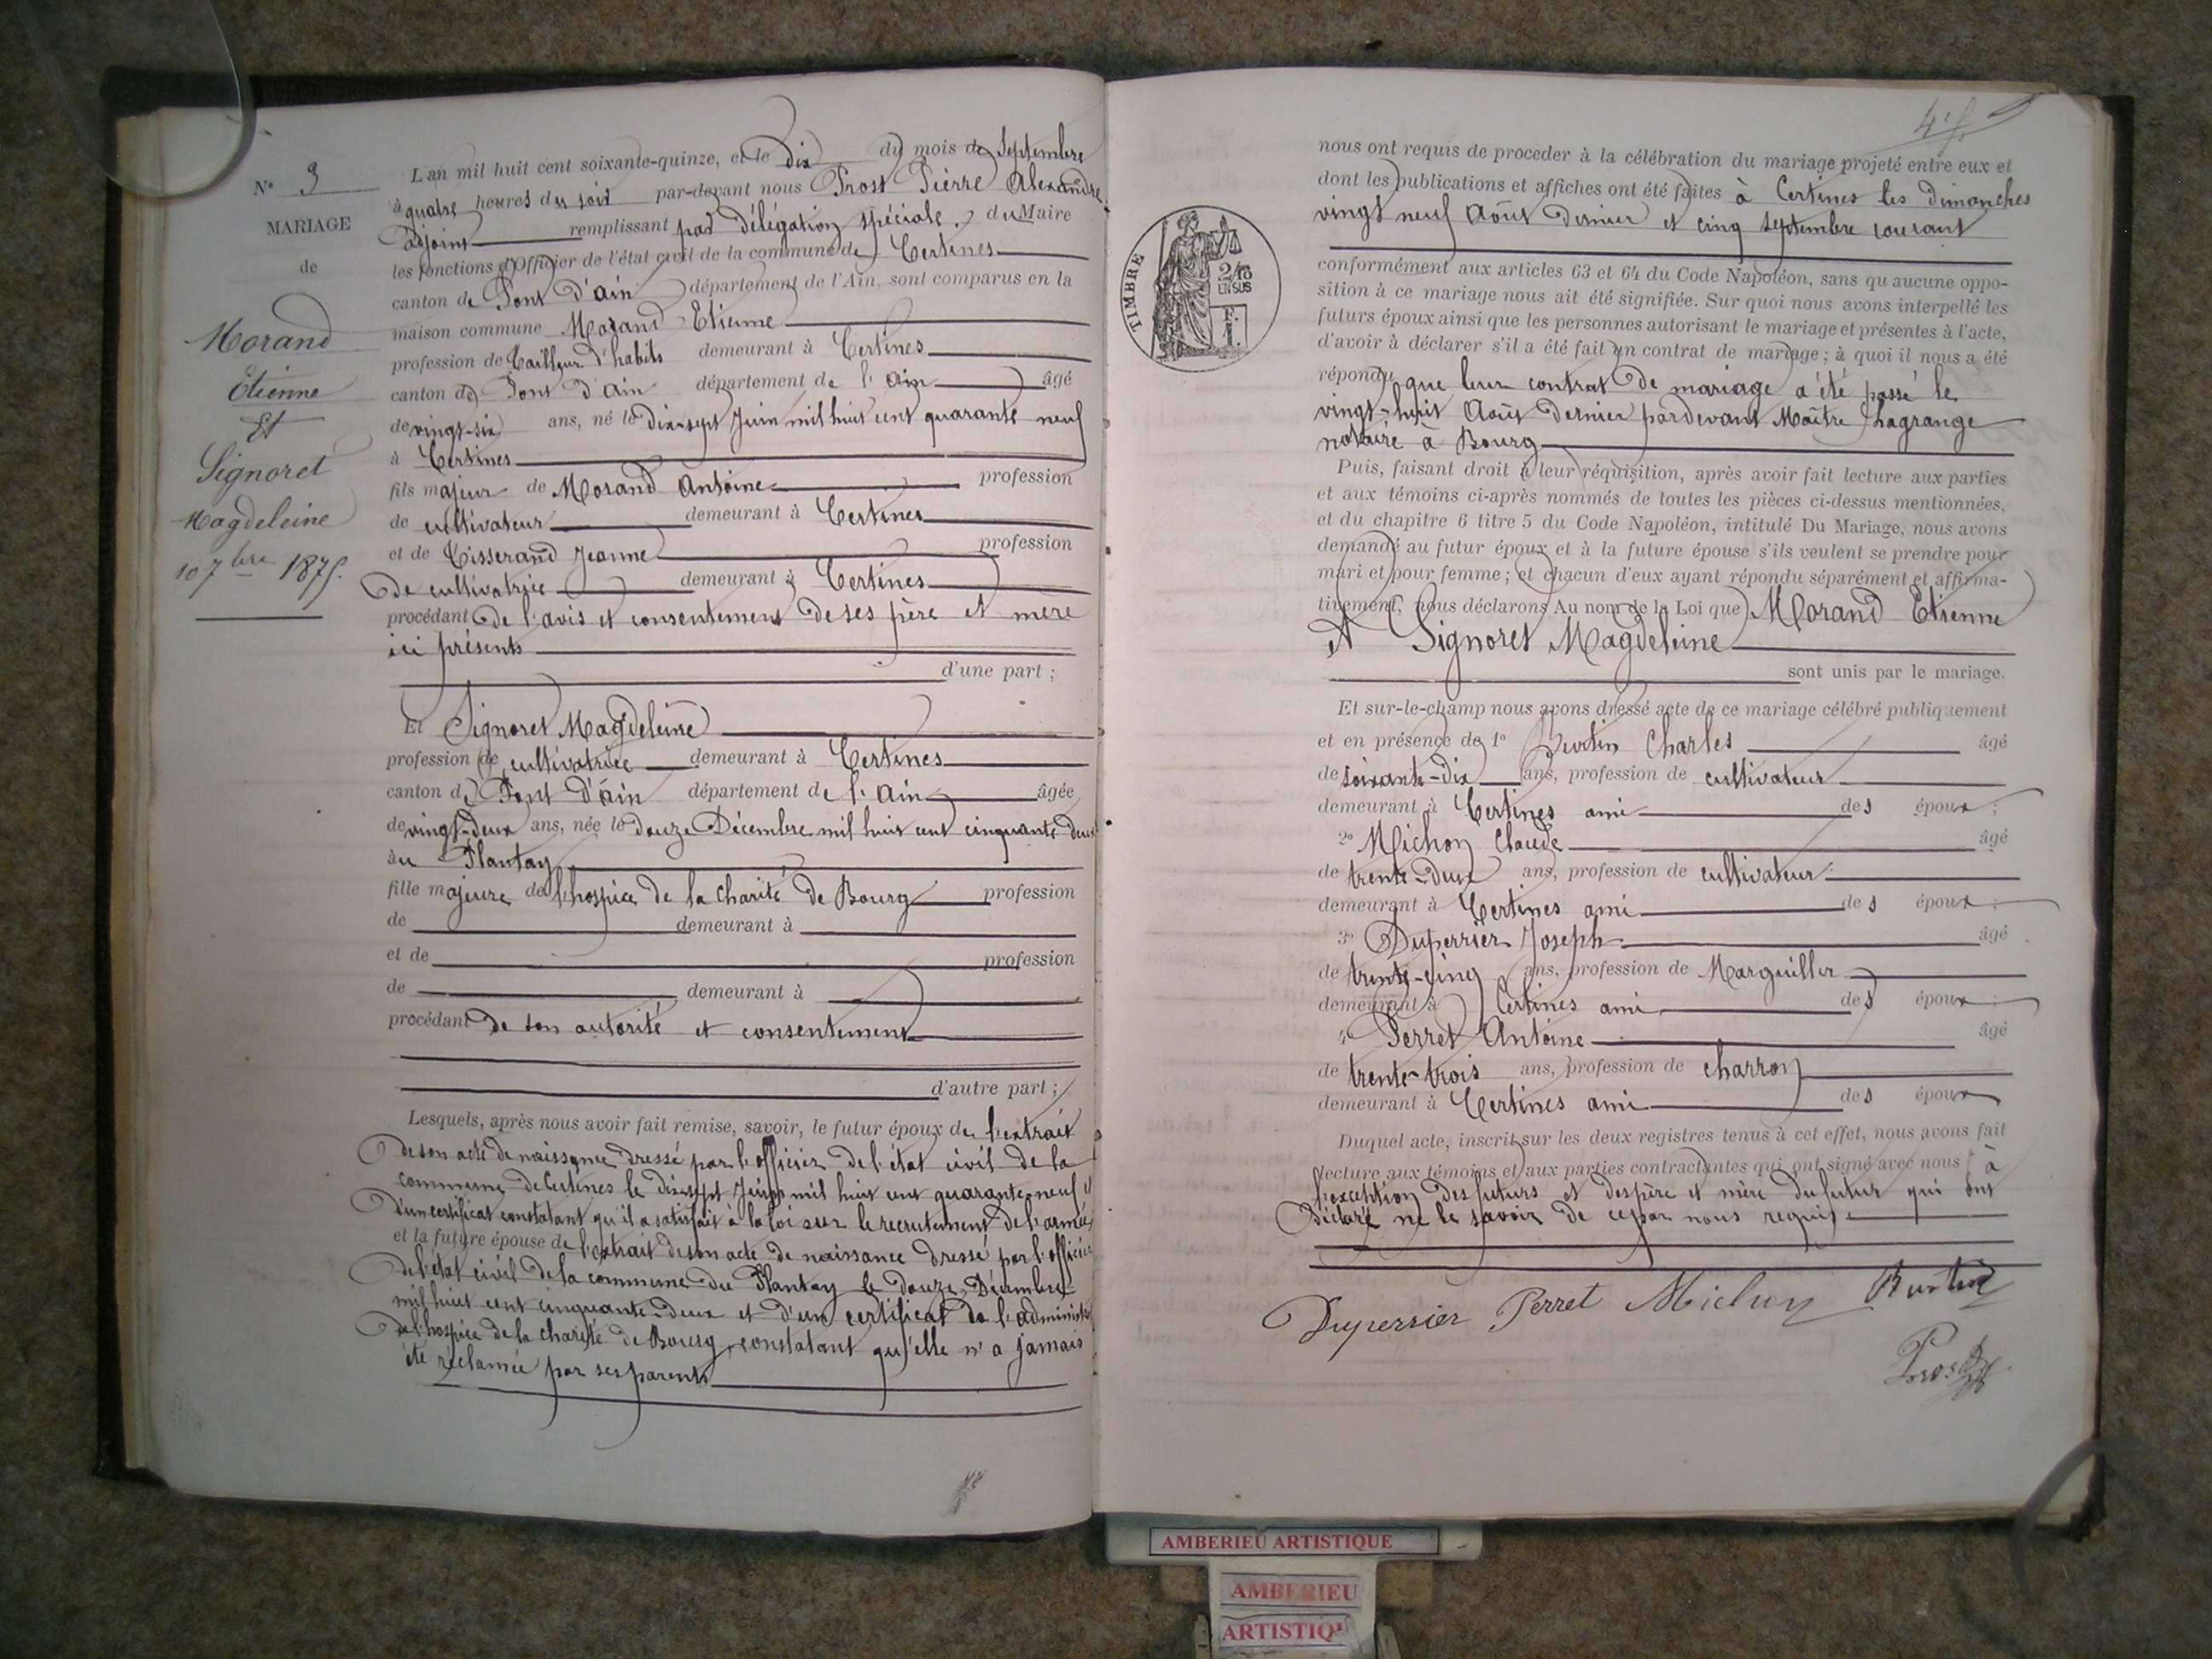 N° 3
MARIAGE
de
Morand
Etienne
Et
Signoret
Magdeleine
10 7bre 1875.
L'an mil huit cent soixante-quinze, et le dix du mois de Septembre
à quatre heures du soir par-devant nous Prost Pierre Alexandre
adjoint remplissant par délégation spéciale du Maire
les fonctions d'Officier de l'état civil de la commune de Certines
canton de Pont d'ain département de l'Ain, sont comparus en la
maison commune Morand Etienne
profession de Tailleur d'habits demeurant à Certines
canton de Pont d'ain département de l'ain âgé
de vingt-six ans, né le dix-sept Juin mil huit cent quarante neuf
à Certines
fils majeur de Morand Antoine profession
de cultivateur demeurant à Certines
et de Tisserand Jeanne profession
de cultivatrice demeurant à Certines
procédant de l'avis et consentement de ses père et mère
ici présents
d'une part ;
Et Signoret Magdeleine
profession de cultivatrice demeurant à Certines
canton de Pont d'ain département de l'ain âgée
de vingt-deux ans, née le douze Décembre mil huit cent cinquante deux
au Plantay
fille majeure de l'hospice de la charité de Bourg profession
de demeurant à
et de profession
de demeurant à
procédant de son autorité et consentement
d'autre part ;
Lesquels, après nous avoir fait remise, savoir, le futur époux de l'extrait
de son acte de naissance dressé par l'officier de l'état civil de la
commune de Certines le dix-sept Juin mil huit cent quarante-neuf et
d'un certificat constatant qu'il a satisfait à la loi sur le recrutement de l'armée
et la future épouse de l'extrait de son acte de naissance dressé par l'officier
de l'état civil de la commune du Plantay le douze Décembre
mil huit cent cinquante-deux et d'un certificat de l'administ
de l'hospice de la charité de Bourg, constatant qu'elle n'a jamais
été réclamée par ses parents
TIMBRE
2/10
EN SUS
nous ont requis de proceder à la célébration du mariage projeté entre eux et
dont les publications et affiches ont été faites à Certines les Dimanches
vingt neuf Août dernier et cinq septembre courant
conformément aux articles 63 et 64 du Code Napoléon, sans qu'aucune oppo-
sition à ce mariage nous ait été signifiée. Sur quoi nous avons interpellé les
futurs époux ainsi que les personnes autorisant le mariage et présentes à l'acte,
d'avoir à déclarer s'il a été fait un contrat de mariage ; à quoi il nous a été
répondu que leur contrat de mariage a été passé le
vingt-huit Août dernier pardevant Maître Lagrange
notaire à Bourg
Puis, faisant droit à leur réquisition, après avoir fait lecture aux parties
et aux témoins ci-après nommés de toutes les pièces ci-dessus mentionnées,
et du chapitre 6 titre 5 du Code Napoléon, intitulé Du Mariage, nous avons
demandé au futur époux et à la future épouse s'ils veulent se prendre pour
mari et pour femme ; et chacun d'eux ayant répondu séparément et affirma-
tivement, nous déclarons Au nom de la Loi que Morand Etienne
Et Signoret Magdeleine
sont unis par le mariage.
Et sur-le-champ nous avons dressé acte de ce mariage célébré publiquement
et en présence de 1° Burtin Charles âgé
de soixante-dix ans, profession de cultivateur
demeurant à Certines ami des époux ;
2° Michon Claude âgé
de trente-deux ans, profession de cultivateur
demeurant à Certines ami des époux ;
3° Duperrier Joseph âgé
de trente-cinq ans, profession de Marguiller
demeurant à Certines ami des époux ;
4° Perret Antoine âgé
de trente-trois ans, profession de charron
demeurant à Certines ami des époux
Duquel acte, inscrit sur les deux registres tenus à cet effet, nous avons fait
lecture aux témoins et aux parties contractantes qui ont signé avec nous à
l'exception des futurs et des père et mère du futur qui ont
déclaré ne le savoir de ce par nous requis.
Duperrier Perret Michon Burtin
Prost
AMBERIEU ARTISTIQUE
AMBERIEU
ARTISTIQ